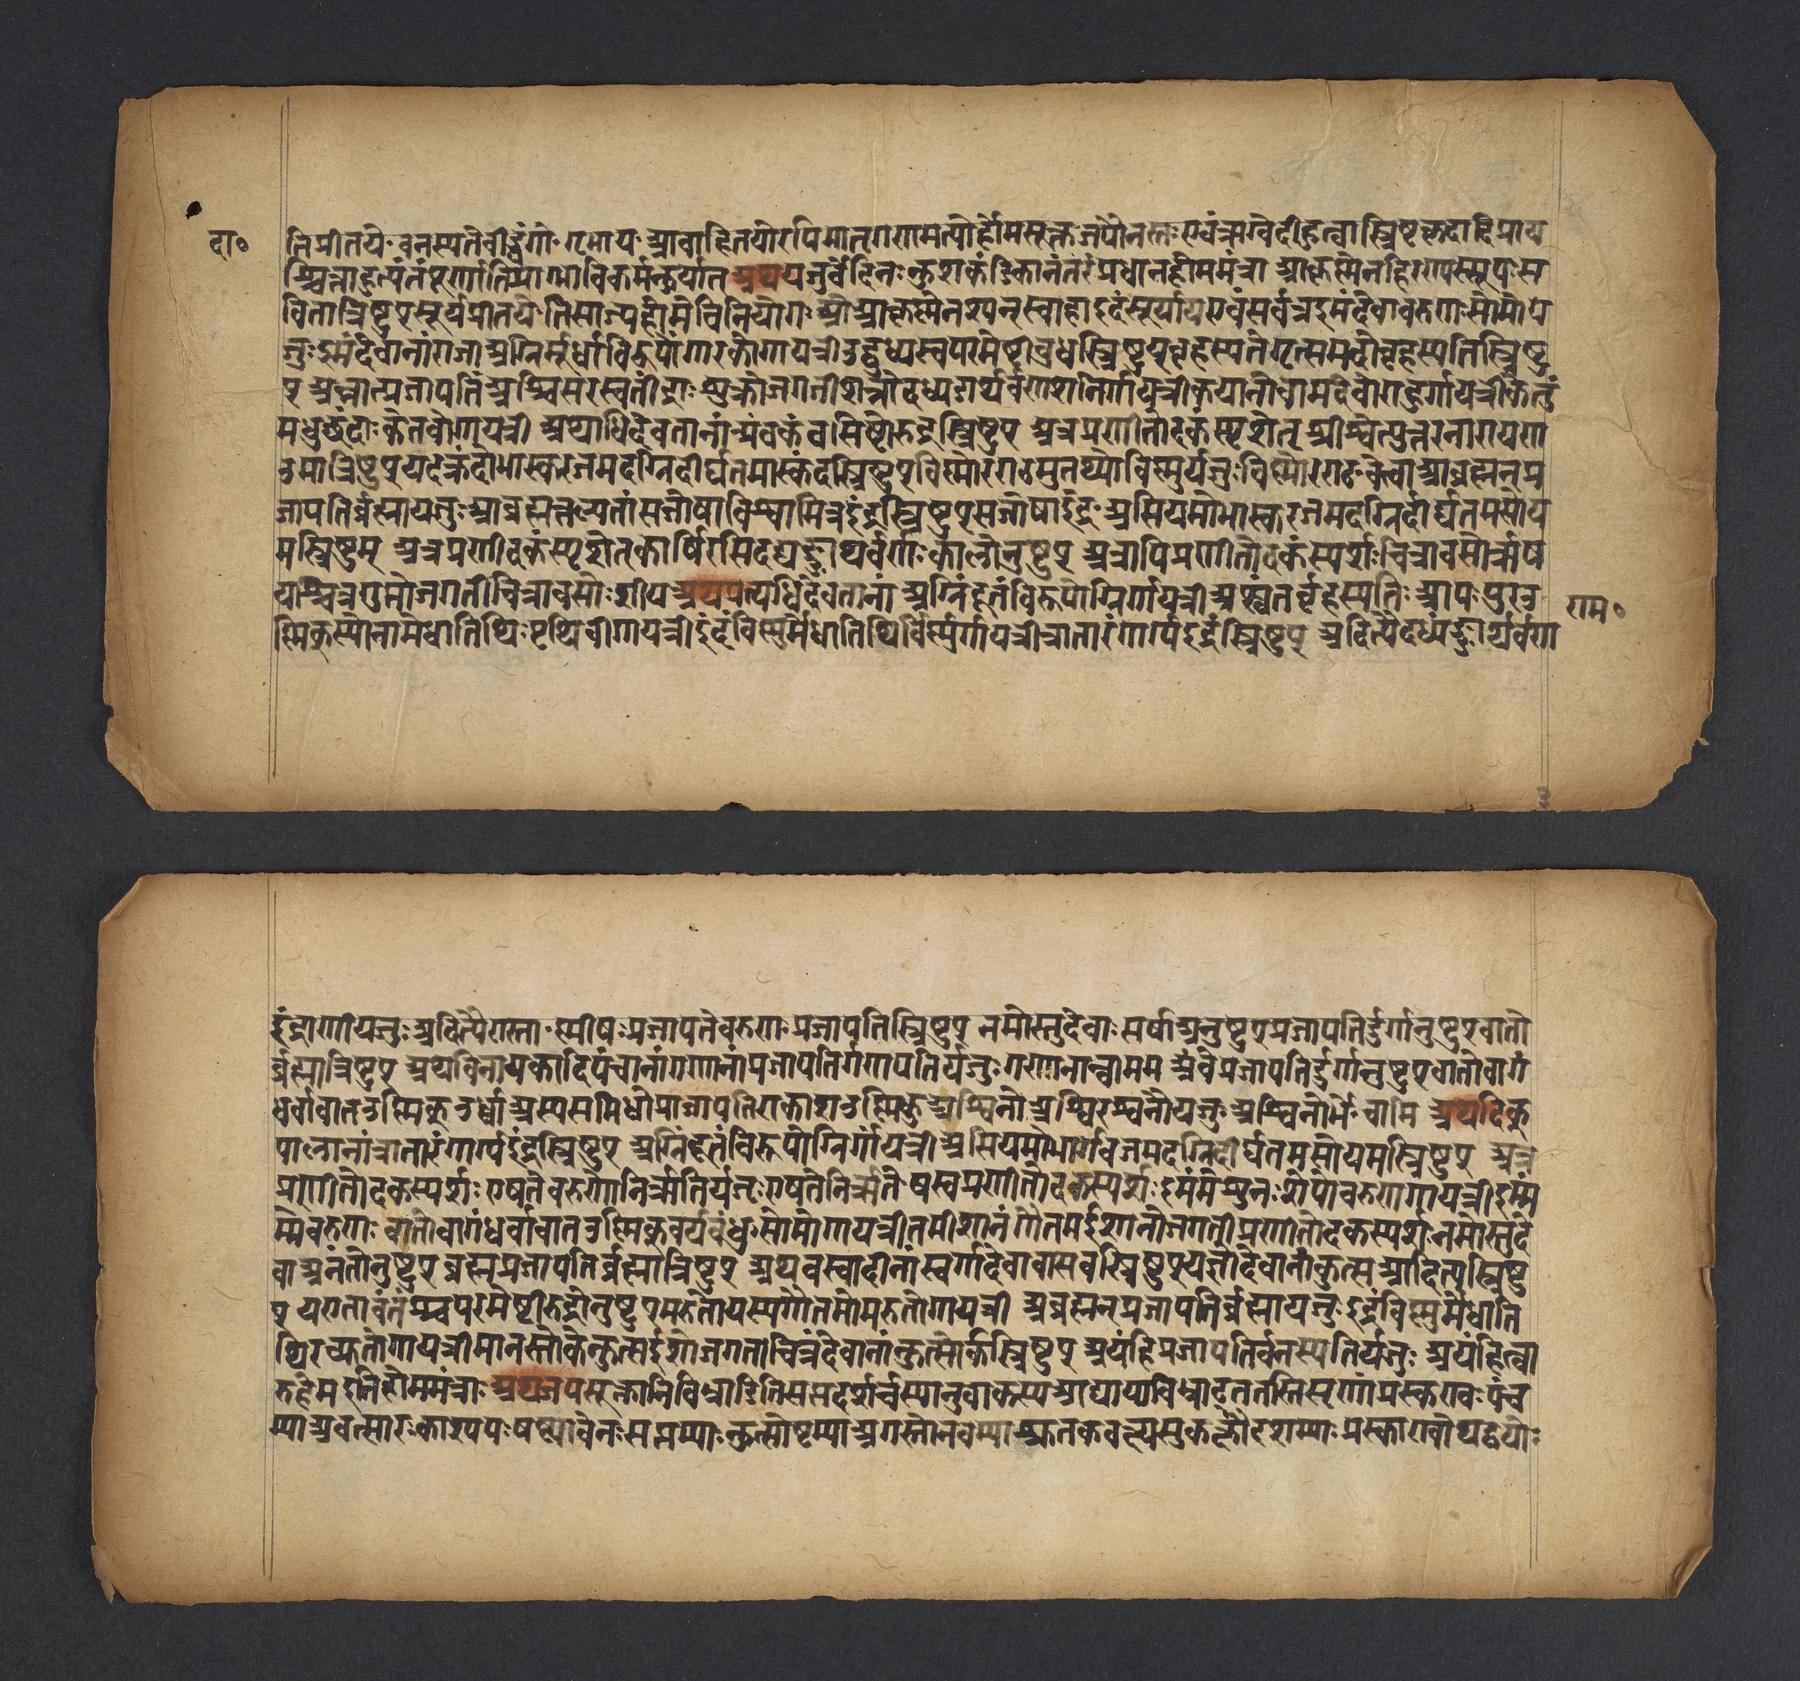 दा०
तिप्रीतये वनस्पतेवीड्वंगो गृभाय आवाहितयोरपिमातृगणामत्योर्होमसूक्तजपौनस्तः एवंऋग्वेदीहुत्वास्विष्टकृदादिप्राय
श्चित्ताहुत्यंतंपूर्णातिप्राग्भाविकर्मकुर्यात् अथयजुर्वेदिनः कुशकंडिकानंतरंप्रधानहोममंत्रा आकृष्णेनहिरण्यस्तूपःस
वितात्रिष्टुप् सूर्यप्रीतयेतिलाज्यहोमेविनियोगः ओंआकृष्णेनश्यन् स्वाहाइदंसूर्याय एवंसर्वत्रइमंदेवावरुणःसोमोय
जुःइमंदेवानांराजाअग्निर्मूर्धाविरूपोंगारकोगायत्रीउद्बुध्यस्वपरमेष्टीबुधस्त्रिष्टुप् बृहस्पतेगृत्समदोबृहस्पतिस्त्रिष्टु
प् अन्नात्प्रजापतिअश्विसरस्वतींद्राः शुक्रोजगतीशन्नोदध्यङाथर्वणःशनिर्गायत्रीकयानोवामदेवोराहुर्गायत्रीकेतुं
मधुछंदाः केतवोगायत्री अथाधिदेवतानां त्र्यंबकंवसिष्टोरुद्रस्त्रिष्टुप् अत्रप्रणीतोदकंस्पृशेत् श्रीश्चतेउत्तरनारायण
उमात्रिष्टुप् यदक्रंदोभास्करजमदग्निदीर्घतमास्कंदस्त्रिष्टुप् विष्णोरराटमुतथ्योविष्णुर्यजुः विष्णोरराट श्नप्त्रेत्वाआब्रह्मन् प्र
जापतिर्ब्रह्मायजुः आब्रह्मन् कल्पतां सजोषाविश्वामित्रइंद्रस्त्रिष्टुप् सजोषाइंद्र असियमोभास्करजमदग्निर्दीर्घतमसोय
मस्त्रिष्टुप् अत्रप्रणीतोदकंस्पृशेत् कार्षिरसिदध्यङ्ङाथर्वणः कालोनुष्टुप् अत्रापिप्रणीतोदकंस्पर्शः चित्रावसोऋष
यश्चित्रगुप्तोजगतीचित्रावसोः शीय अथप्रत्यधिदेवतानां अग्निंदूतंविरूपोग्निर्गायत्रीअप्स्वंतर्बृहस्पतिः आपः पुरउ
राम०
ष्णिक्स्योनामेधातिथिः पृथिवीगायत्रीइदंविष्णुर्मेधातिथिर्विष्णुर्गायत्रीत्रातारंगार्ग्यइंद्रस्त्रिष्टुप् अदित्यैदध्यङ्ङाथर्वण
इंद्राणीयजुः अदित्यैरास्ना ष्णीषः प्रजापतेवरुणः प्रजापतिस्त्रिष्टुप् नमोस्तुदेवाः सर्पाअनुष्टुप् प्रजापतिर्दुर्गानुष्टुप् वातो
र्ब्रह्मात्रिष्टुप् अथविनायकादिपंचानांगणानांप्रजापतिर्गणपतिर्यजुः गणानान्त्वामम अंबेप्रजापतिर्दुर्गानुष्टुप् वातोवागं
धर्वावातउष्णिक् उर्ध्वाअस्यसमिधोप्राजापतिराकाशउष्णिक् अश्विनोअश्विरश्विनौयजुः अश्विनोर्भै चामि अथदिक्
पालानांत्रातारंगार्ग्यइंद्रस्त्रिष्टुप् अग्निंदूतंविरूपोग्निर्गायत्रीअसियमोभार्गवजमदग्निदीर्घतमसोयमस्त्रिष्टुप् अत्र
प्रणीतोदकस्पर्शः एषतेवरुणोनिर्ऋतिर्यजुः एषतेनिर्ऋते षस्वप्रणीतोदकस्पर्शः इमंमेशुनःशेपोवरुणोगायत्रीइमंम
म्मेवरुणः वातोवागंधर्वावातउष्णिक् वयंबंधुः सोमोगायत्रीतमीशानंगौतमईशानोजगतीप्रणीतोदकस्पर्शः नमोस्तुदे
वाअनंतोनुष्टुप् ब्रह्मप्रजापतिर्ब्रह्मात्रिष्टुप् अथवस्वादीनांस्वर्गादेवावासवस्त्रिष्टुप् यज्ञोदेवानांकुत्सआदित्यस्त्रिष्टु
प् यएतावंतंश्चपरमेष्टीरुद्रोनुष्टुप् मरुतोयस्यगौतमोमरुतोगायत्री अब्रह्मन् प्रजापतिर्ब्रह्मायजुः इदंविष्णुर्मेधाति
थिरच्युतोगायत्रीमानस्तोकेकुत्सईशोजगतीचित्रंदेवानांकुत्सोर्कस्त्रिष्टुप् अयंहिप्रजापतिर्वनस्पतिर्यजुः अयंहित्वा
रुहेम इतिहोममंत्राः अथजपसूक्तानिविभ्राडितिसप्तदशर्चस्यानुवाकस्यआद्यायाविभ्राट् ततस्तिसृणांप्रस्कण्वः पंच
म्याअवत्सारः काश्यपः षष्ट्यावेनः सप्तम्याः कुत्सोष्टम्याअगस्तोनवम्या श्रुतकक्ष सुकक्षौदशम्याः प्रस्कण्वोथद्वयोः